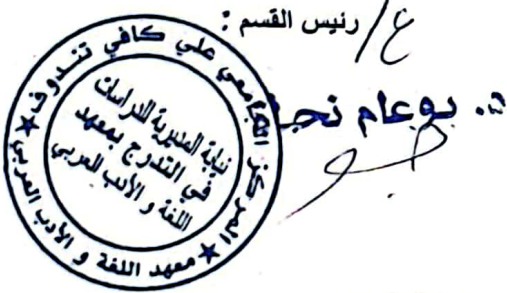 ع/ رئيس القسم :
د. بوعام نجـ
المركز الجامعي علي كافي تندوف
معهد اللغة و الأدب العربي
نيابة المديرية للدراسات
في التدرج بمعهد
اللغة و الأدب العربي